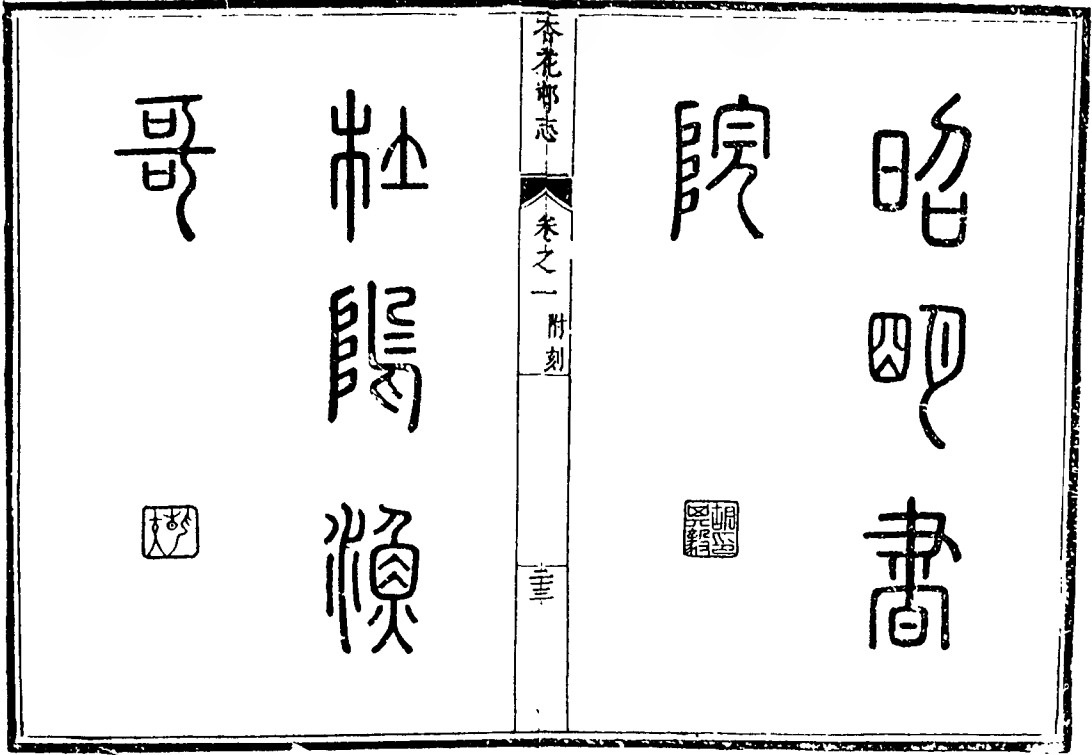 昭明書
院
杏花邨志
卷之一
附刻
杜隖漁
哥